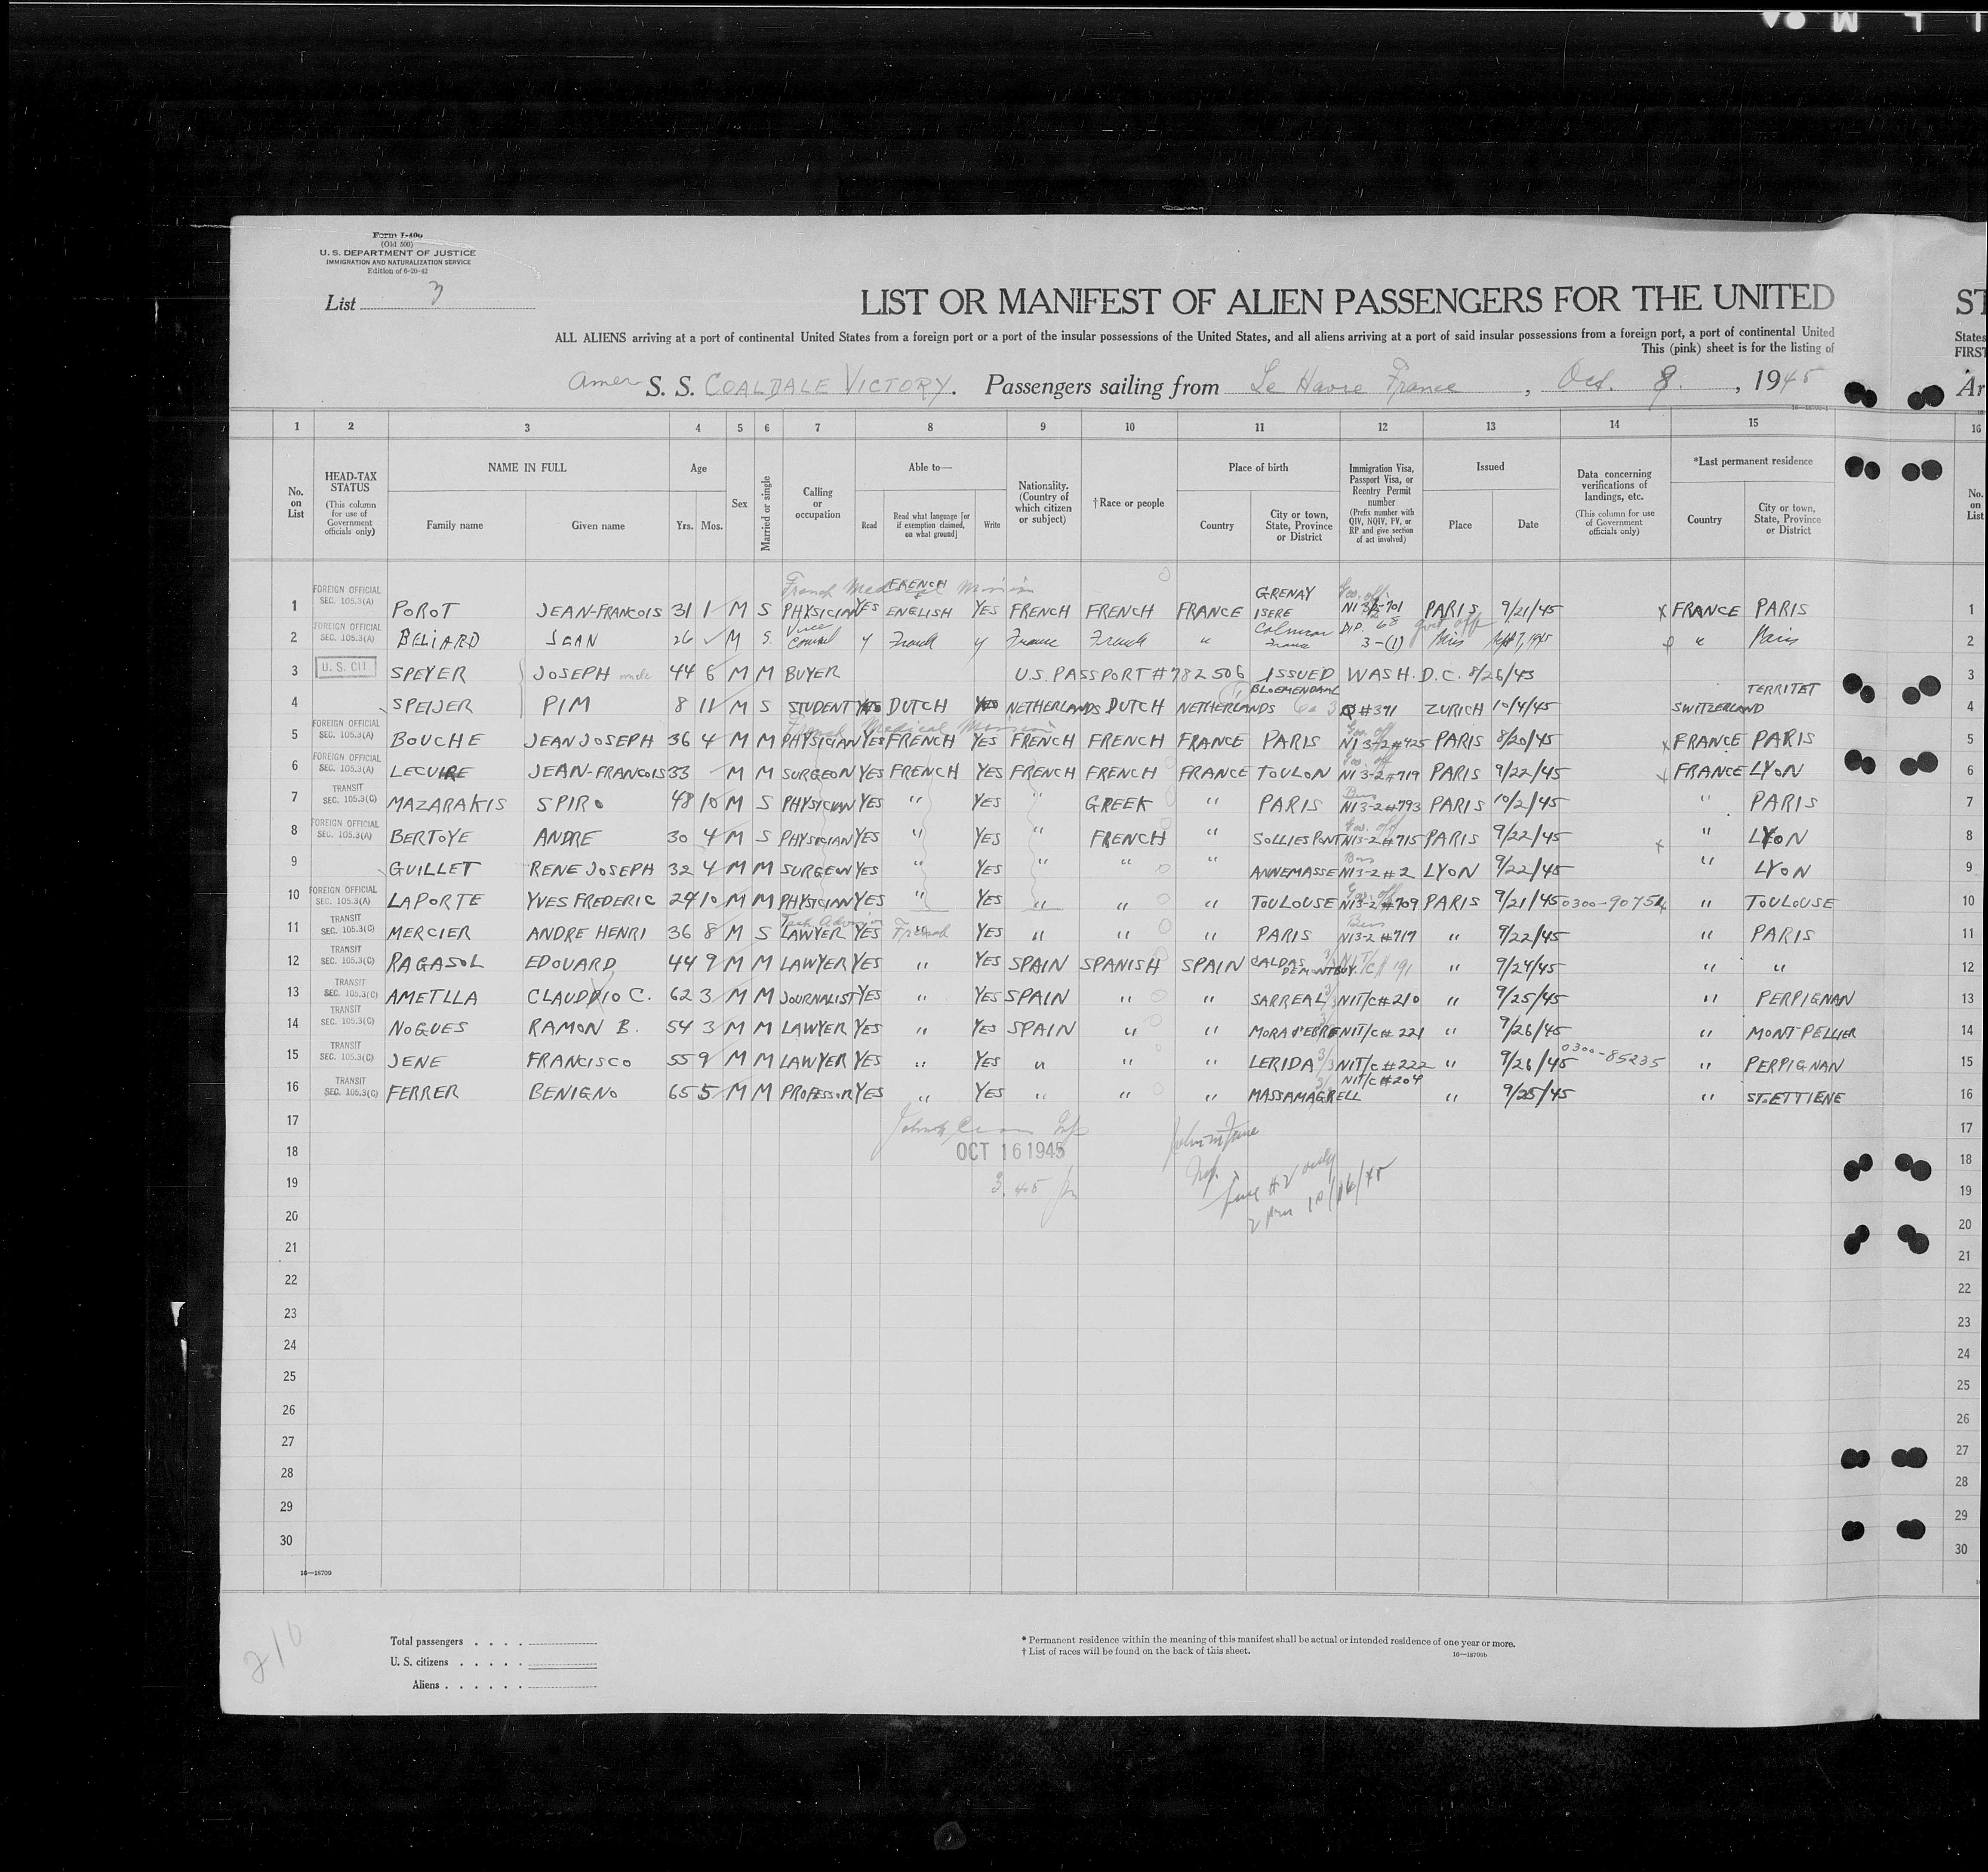 Form I-400
(Old 500)
U. S. DEPARTMENT OF JUSTICE
IMMIGRATION AND NATURALIZATION SERVICE
Edition of 6-20-42
List 3
LIST OR MANIFEST OF ALIEN PASSENGERS FOR THE UNITED ST
ALL ALIENS arriving at a port of continental United States from a foreign port or a port of the insular possessions of the United States, and all aliens arriving at a port of said insular possessions from a foreign port, a port of continental United States
This (pink) sheet is for the listing of FIRST
Amer S. S. COALDALE VICTORY. Passengers sailing from Le Havre France, Oct. 8, 1945 Ar
1 2 3 4 5 6 7 8 9 10 11 12 13 14 15 16
No. on List
HEAD-TAX STATUS (This column for use of Government officials only)
NAME IN FULL Family name Given name
Age Yrs. Mos.
Sex
Married or single
Calling or occupation
Able to— Read Read what language [or if exemption claimed, on what ground] Write
Nationality. (Country of which citizen or subject)
†Race or people
Place of birth Country City or town, State, Province or District
Immigration Visa, Passport Visa, or Reentry Permit number (Prefix number with QIV, NQIV, PV, or RP and give section of act involved)
Issued Place Date
Data concerning verifications of landings, etc. (This column for use of Government officials only)
*Last permanent residence Country City or town, State, Province or District
No. on List
French Medical Mission
1 FOREIGN OFFICIAL SEC. 105.3(A) POROT JEAN-FRANCOIS 31 1 M S PHYSICIAN YES FRENCH & ENGLISH YES FRENCH FRENCH FRANCE GRENAY ISERE Gov. off. NI 3-2-701 PARIS 9/21/45 x FRANCE PARIS 1
2 FOREIGN OFFICIAL SEC. 105.3(A) BELIARD JEAN 26 M S. Vice Consul y French y France French " Colmar France DIP. 68 3-(1) Govt off Paris Sept 7, 1945 " Paris 2
3 U.S. CIT SPEYER JOSEPH uncle 44 6 M M BUYER U.S. PASSPORT #782506 ISSUED WASH. D.C. 8/26/45 3
4 SPEIJER PIM 8 11 M S STUDENT YES DUTCH YES NETHERLANDS DUTCH NETHERLANDS BLOEMENDAAL #391 ZURICH 10/4/45 SWITZERLAND TERRITET 4
French Medical Mission
5 FOREIGN OFFICIAL SEC. 105.3(A) BOUCHE JEAN JOSEPH 36 4 M M PHYSICIAN YES FRENCH YES FRENCH FRENCH FRANCE PARIS Gov. off NI 3-2 #425 PARIS 8/20/45 x FRANCE PARIS 5
6 FOREIGN OFFICIAL SEC. 105.3(A) LECUIRE JEAN-FRANCOIS 33 M M SURGEON YES FRENCH YES FRENCH FRENCH FRANCE TOULON Gov. off NI 3-2 #719 PARIS 9/22/45 x FRANCE LYON 6
7 TRANSIT SEC. 105.3(C) MAZARAKIS SPIRO 48 10 M S PHYSICIAN YES " YES " GREEK " PARIS Bus NI 3-2 #793 PARIS 10/2/45 " PARIS 7
8 FOREIGN OFFICIAL SEC. 105.3(A) BERTOYE ANDRE 30 4 M S PHYSICIAN YES " YES " FRENCH " SOLLIES PONT Gov. off NI 3-2 #715 PARIS 9/22/45 x " LYON 8
9 GUILLET RENE JOSEPH 32 4 M M SURGEON YES " YES " " " ANNEMASSE Bus NI 3-2 #2 LYON 9/22/45 " LYON 9
10 FOREIGN OFFICIAL SEC. 105.3(A) LAPORTE YVES FREDERIC 24 10 M M PHYSICIAN YES " YES " " " TOULOUSE Gov. off NI 3-2 #709 PARIS 9/21/45 0300-90754 " TOULOUSE 10
11 TRANSIT SEC. 105.3(C) MERCIER ANDRE HENRI 36 8 M S Tech. Advisor LAWYER YES French YES " " " PARIS Bus NI 3-2 #717 " 9/22/45 " PARIS 11
12 TRANSIT SEC. 105.3(C) RAGASOL EDOUARD 44 9 M M LAWYER YES " YES SPAIN SPANISH SPAIN CALDAS DE MONTBUY NIT/C# 191 " 9/24/45 " " 12
13 TRANSIT SEC. 105.3(C) AMETLLA CLAUDIO C. 62 3 M M JOURNALIST YES " YES SPAIN " " SARREAL 3/3 NIT/C#210 " 9/25/45 " PERPIGNAN 13
14 TRANSIT SEC. 105.3(C) NOGUES RAMON B. 54 3 M M LAWYER YES " YES SPAIN " " MORA d'EBRE NIT/C# 221 " 9/26/45 " MONTPELLIER 14
15 TRANSIT SEC. 105.3(C) JENE FRANCISCO 55 9 M M LAWYER YES " YES " " " LERIDA 3/3 NIT/C#222 " 9/26/45 0300-85235 " PERPIGNAN 15
16 TRANSIT SEC. 105.3(C) FERRER BENIGNO 65 5 M M PROFESSOR YES " YES " " " MASSAMAGRELL NIT/C#204 " 9/25/45 " ST. ETTIENE 16
17 17
18 OCT 16 1945 18
19 3.45 pm Insp. line #2 only 19
20 2 pm 10/16/45 20
21 21
22 22
23 23
24 24
25 25
26 26
27 27
28 28
29 29
30 30
16—18709
210
Total passengers . . . .
U. S. citizens . . . . .
Aliens . . . . . .
* Permanent residence within the meaning of this manifest shall be actual or intended residence of one year or more.
† List of races will be found on the back of this sheet.
16—18709b